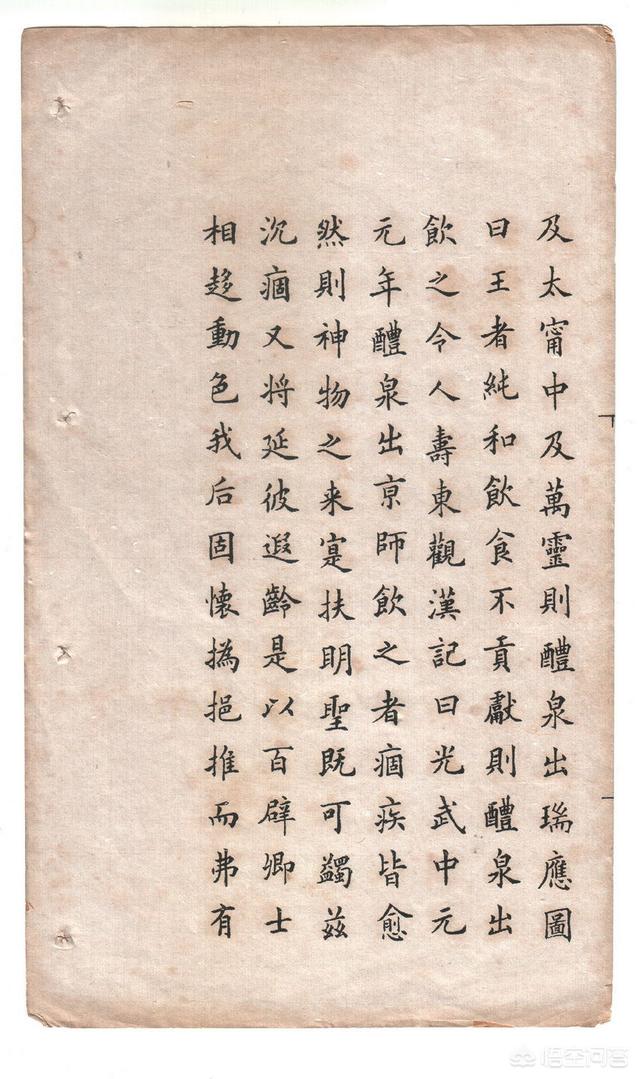 及太甯中及萬靈則醴泉出瑞應圖
曰王者純和飲食不貢獻則醴泉出
飲之令人壽東觀漢記曰光武中元
元年醴泉出京師飲之者痼疾皆愈
然則神物之来寔扶明聖既可蠲兹
沉痼又将延彼遐齡是以百辟卿士
相趍動色我后固懷撝挹推而弗有
悟空问答